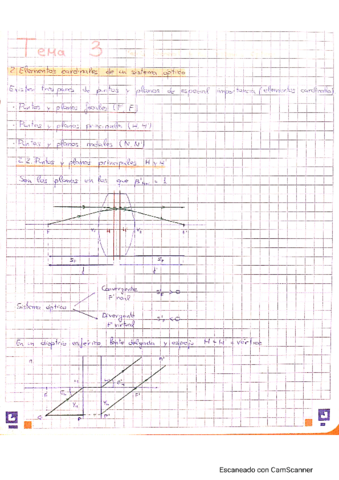 Tema 3
2. Elementos cardinales de un sistema óptico
Existen tres pares de puntos y planos de especial importancia (elementos cardinales)
· Puntos y planos focales (F F')
· Puntos y planos principales (H H')
· Puntos y planos nodales (N N')
2.2 Puntos y planos principales H H'
Son los planos en los que β' = 1
F
H
H'
F'
Sistema óptico
Convergente
F' real
Divergente
F' virtual
En un dioptrio esférico, lente delgada y espejo H H' = vértice
Escaneado con CamScanner